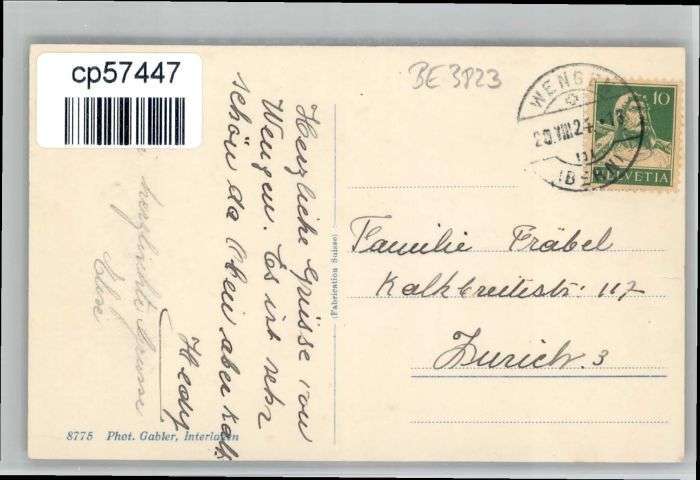 cp57447
BE 3823
WENGEN
20.VIII.24
(BERN)
10
HELVETIA
Herzliche Grüsse von
Wengen. Es ist sehr
schön da oben aber kalt
Hedy
herzlichste Grüsse
Elise
Familie Fräbel
Kalkbreitestr. 117
Zürich. 3
(Fabrication Suisse)
8775 Phot. Gabler, Interlaken